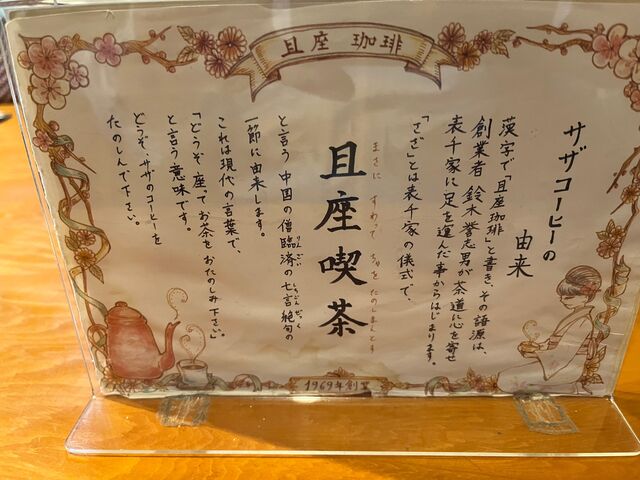 且座 珈琲
サザコーヒーの
由来
漢字で「且座珈琲」と書き、その語源は、
創業者 鈴木誉志男が茶道に心を寄せ
表千家に足を運んだ事からはじまります。
「さざ」とは表千家の儀式で、
且座喫茶
まさに すわって ちゃを たのしまんとす
と言う 中国の僧臨済の七言絶句の
りんざい
しちごんぜっく
一節に由来します。
これは現代の言葉で、
「どうぞ座ってお茶をおたのしみ下さい。」
と言う意味です。
どうぞ、サザのコーヒーを
たのしんで下さい。
1969年創業